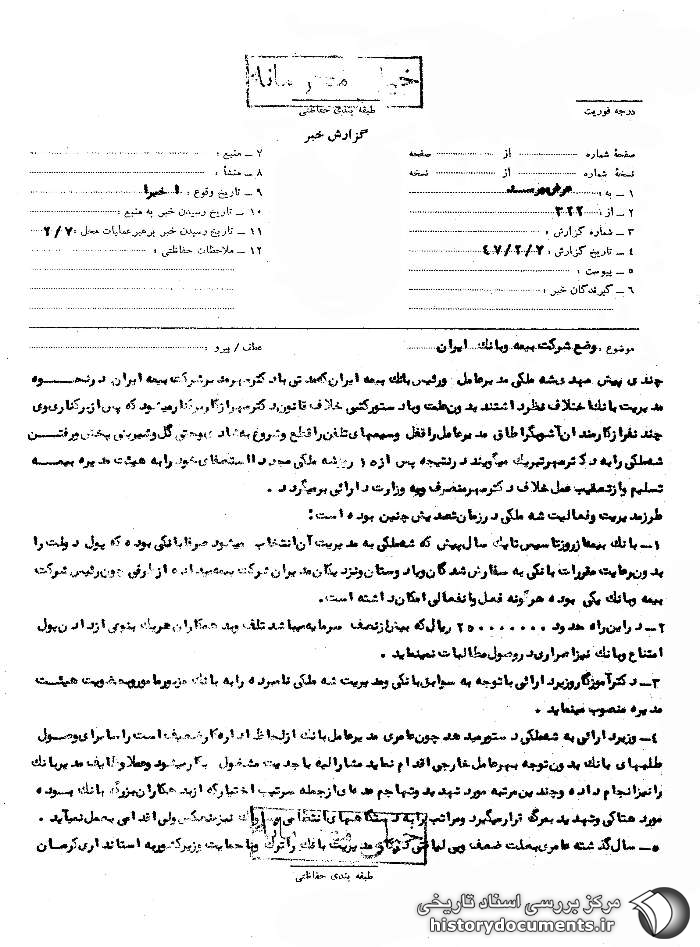 خیلی محرمانه
طبقه بندی حفاظتی
درجه فوریت
گزارش خبر
صفحهٔ شماره از صفحه
نسخهٔ شماره از نسخه
۱ – به : عرض میرسد
۲ – از : ۳۲۲
۳ – شماره گزارش :
۴ – تاریخ گزارش : ۴۷/۲/۷
۵ – پیوست :
۶ – گیرندگان خبر :
۷ – منبع :
۸ – منشأ :
۹ – تاریخ وقوع : اخیرا
۱۰ – تاریخ رسیدن خبر به منبع :
۱۱ – تاریخ رسیدن خبر برهبر عملیات محل : ۲/۷
۱۲ – ملاحظات حفاظتی :
موضوع : وضع شرکت بیمه و بانک ایران
عطف / پیرو :
چندی پیش مهدی شه ملکی مدیرعامل ورئیس بانک بیمه ایران که مدتی با دکتر مهر مدیر شرکت بیمه ایران در نحوه
مدیریت بانک اختلاف نظر داشتند بدون علت وبا دستور کتبی خلاف قانون دکتر مهر از کار برکنار میشود که پس از برکناری وی
چند نفر از کارمندان آشوبگر اطاق مدیرعامل را قفل وسیمهای تلفن را قطع وشروع به شادی وحتی گل وشیرینی پخش ورفتن
شه ملکی را به دکتر مهر تبریک میگویند در نتیجه پس از ۱۵ روز شه ملکی مجددا استعفای خود را به هیئت مدیره بیمه
تسلیم واز تعقیب عمل خلاف دکتر مهر منصرف وبه وزارت دارائی برمیگردد .
طرز مدیریت وفعالیت شه ملکی در زمان تصدیش چنین بوده است :
۱– بانک بیمه از روز تاسیس تا یک سال پیش که شه ملکی به مدیریت آن انتخاب میشود صرفا بانکی بوده که پول دولت را
بدون رعایت مقررات بانکی به سفارش شدگان وبا دوستان ونزدیکان مدیران شرکت بیمه میداده از طرفی چون رئیس شرکت
بیمه وبانک یکی بوده هرگونه فعل وانفعالی امکان داشته است .
۲– در این راه حدود ۲۵۰۰۰۰۰۰۰ ریال که بیش از نصف سرمایه میباشد تلف وبد همکاران هر یک بنوعی از دادن پول
امتناع وبانک نیز اصراری در وصول مطالبات نمینماید .
۳– دکتر آموزگار وزیر دارائی با توجه به سوابق بانکی ومدیریت شه ملکی نامبرده را به بانک مزبور مامور وبعضویت هیئت
مدیره منصوب مینماید .
۴– وزیر دارائی به شه ملکی دستور میدهد چون عامری مدیرعامل بانک از لحاظ اداره کار ضعیف است راسا برای وصول
طلبهای بانک بدون توجه بهر عامل خارجی اقدام نماید مشارالیه با جدیت مشغول بکار میشود وعملا وظایف مدیر بانک
را نیز انجام داده وچندین مرتبه مورد تهدید وتهاجم عده ای از جمله سرتیپ اختیار که از بد همکاران بزرگ بانک بوده
مورد هتاکی وتهدید بمرگ قرار میگیرد ومراتب را به دستگاههای انتظامی وساواک نیز منعکس ولی اقدامی بعمل نمیآید .
۵– سال گذشته عامری بعلت ضعف وبی لیاقتی در کار مدیریت بانک را ترک وبا حمایت وزیر کشور به استانداری کرمان
خیلی محرمانه
طبقه بندی حفاظتی
مرکز بررسی اسناد تاریخی
historydocuments.ir